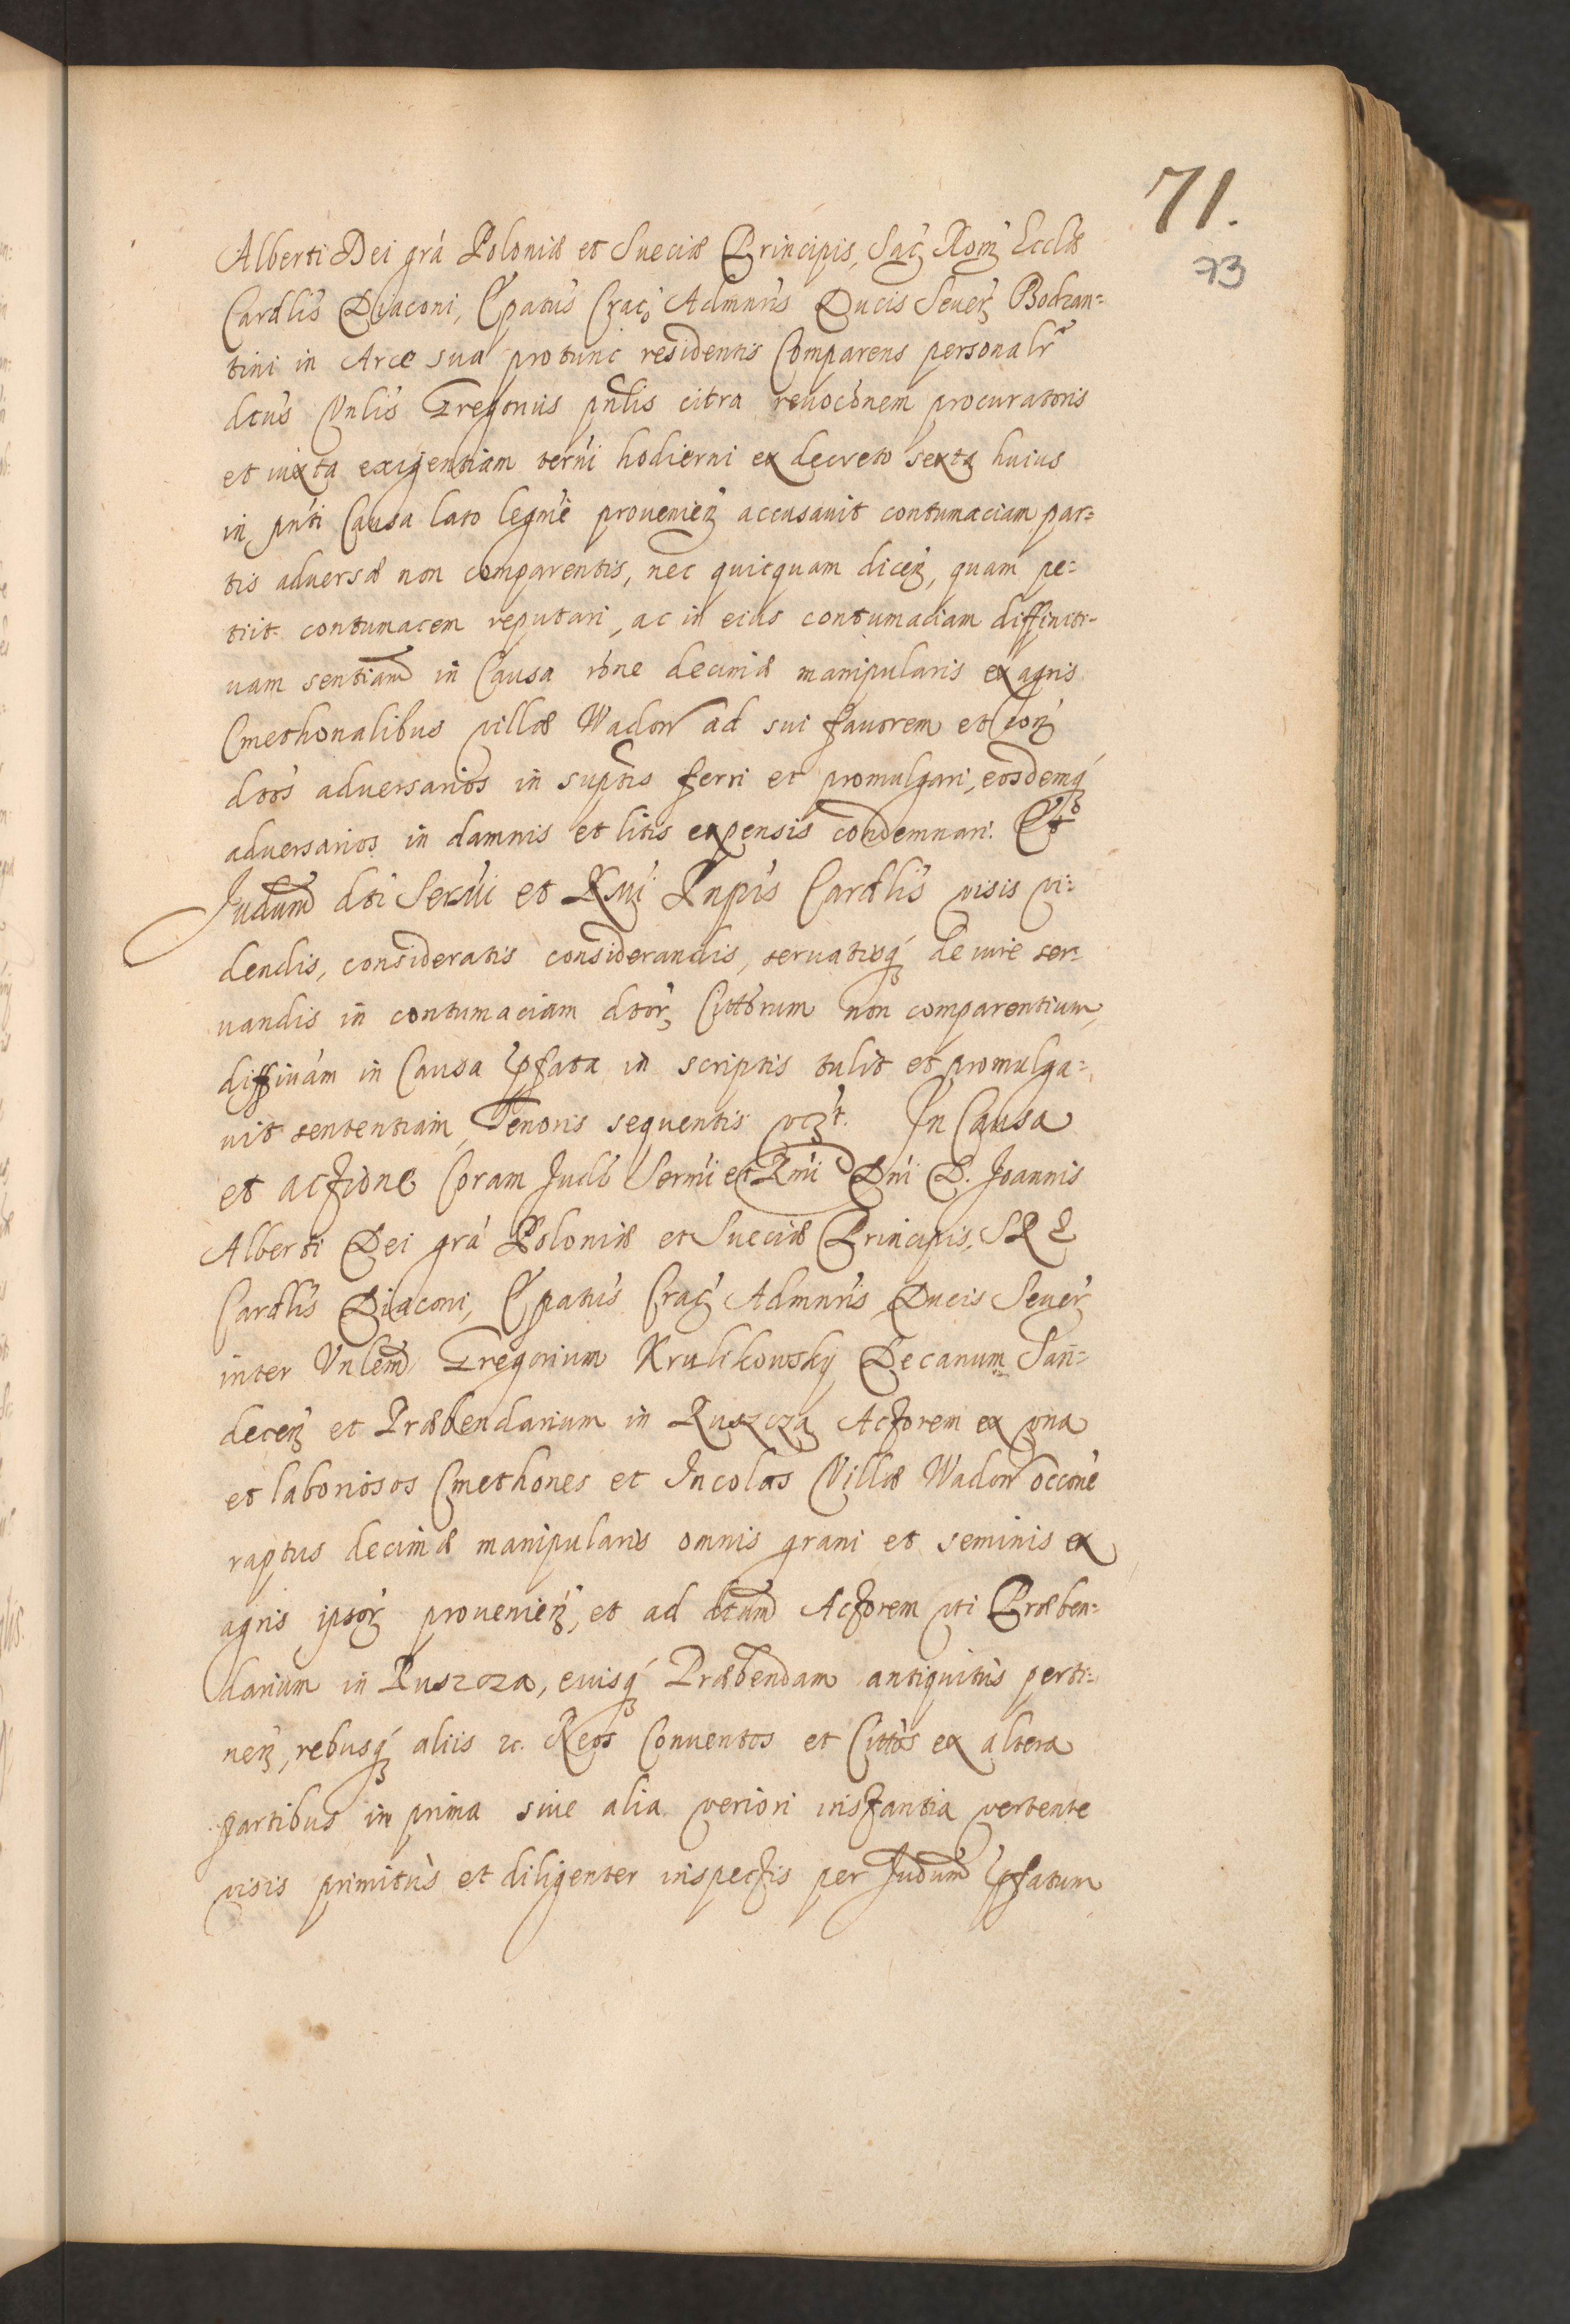 71.
73
Alberti Dei grá Poloniæ et Sueciæ Principis, Sac Rom Ecclæ
Cardlis Diaconi, Epatus Crac Admnris Ducis Sever Bodzan=
tini in Arce sua protunc residentis Comparens personalr
dtus Vnlis Gregorius pnlis citra revocónem procuratoris
et iuxta exigentiam termi hodierni ex decreto sexta huius
in pnti Causa lato legme provenien accusavit contumaciam par=
tis adversæ non comparentis, nec quicquam dicen, quam pe=
tiit contumacem reputari, ac in eius contumaciam diffiniti=
uam sentiam in Causa róne decimæ manipularis ex agris
Cmethonalibus villæ Wadow ad sui favorem et con
dtos adversarios in suptis ferri et promulgari, eosdemq
adversarios in damnis et litis expensis condemnari. Et
Judum dti Sermi et Rmi Pnpis Cardlis visis vi=
dendis, consideratis considerandis, servatisq de iure ser=
uandis in contumaciam dtor Cittorum non comparentium,
diffivam in Causa pfata in scriptis tulit et promulga=
uit sententiam, Tenoris sequentis vczt. In Causa
et actione Coram Judo Sermi et Rmi Dni D. Joannis
Alberti Dei grá Poloniæ et Sueciæ Principis, S R E
Cardlis Diaconi, Epatus Crac Admnris Ducis Sever
inter Vnlem Gregorium Krulikowsky Decanum San=
decen et Præbendarium in Ruszcza Actorem ex vna
et laboriosos Cmethones et Incolas Villæ Wadow occone
raptus decimæ manipularis omnis grani et seminis ex
agris ipsor provenien, et ad dtum Actorem vti Præben=
darium in Ruszcza, euisq Præbendam antiquitus perti=
nen, rebusq aliis 2c. Reos Conventos et Cittos ex altera
partibus in prima sive alia veriori instantia vertente
visis primitùs et diligenter inspectis per Judum pfatum